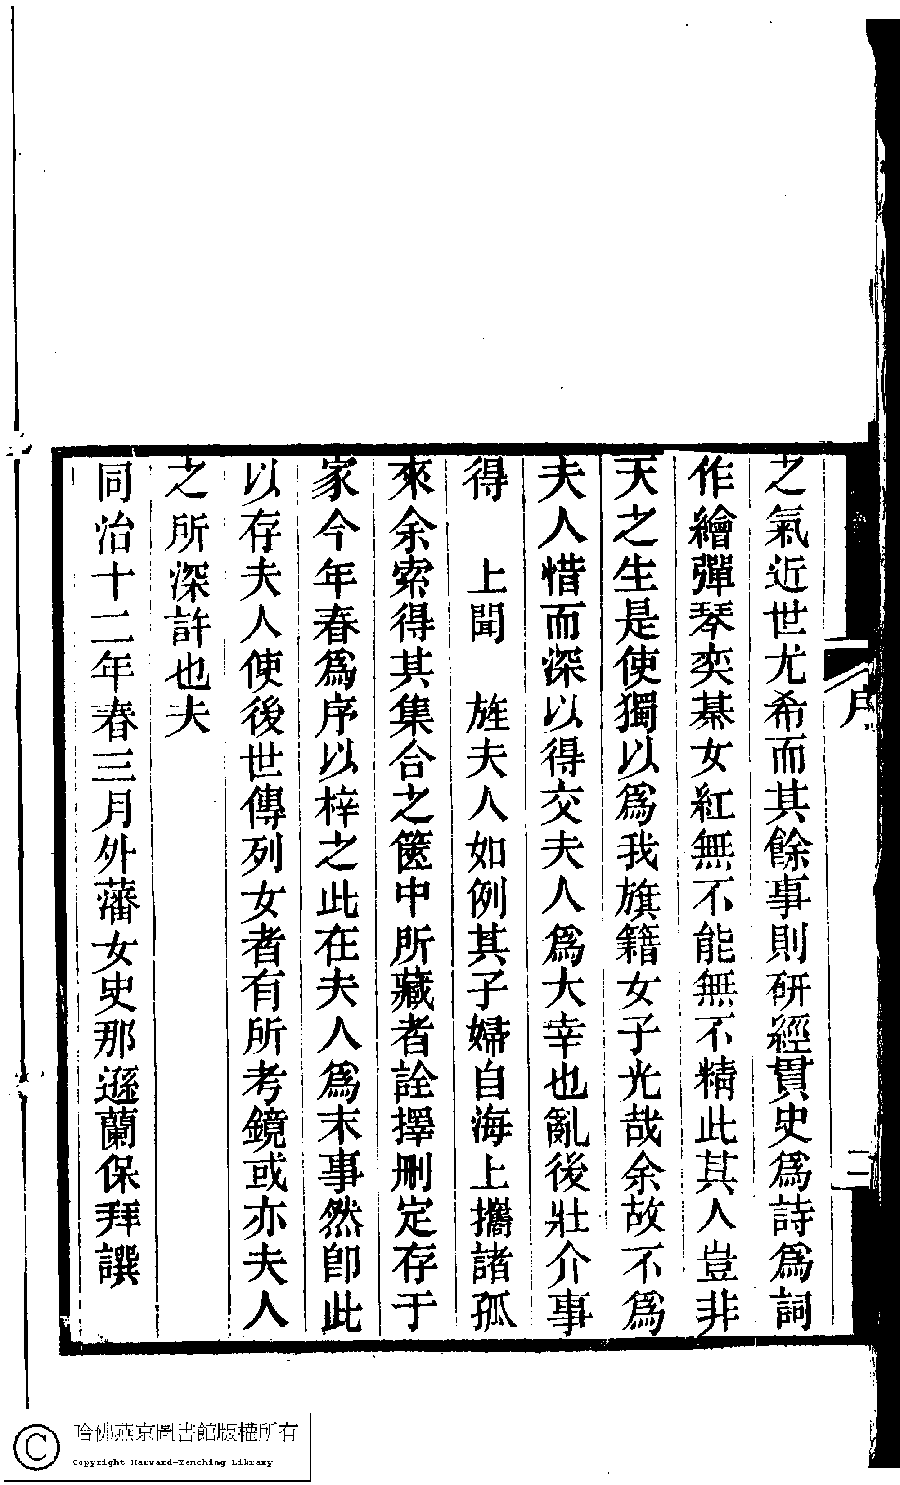 序
二
之氣近世尤希而其餘事則硏經貫史爲詩爲詞
作繪彈琴奕棊女紅無不能無不精此其人豈非
天之生是使獨以爲我旗籍女子光哉余故不爲
夫人惜而深以得交夫人爲大幸也亂後壯介事
得　上聞　旌夫人如例其子婦自海上攜諸孤
來余索得其集合之篋中所藏者詮擇删定存于
家今年春爲序以梓之此在夫人爲末事然卽此
以存夫人使後世傳列女者有所考鏡或亦夫人
之所深許也夫
同治十二年春三月外藩女史那遜蘭保拜譔
哈佛燕京圖書館版權所有
Copyright Harvard-Yenching Library